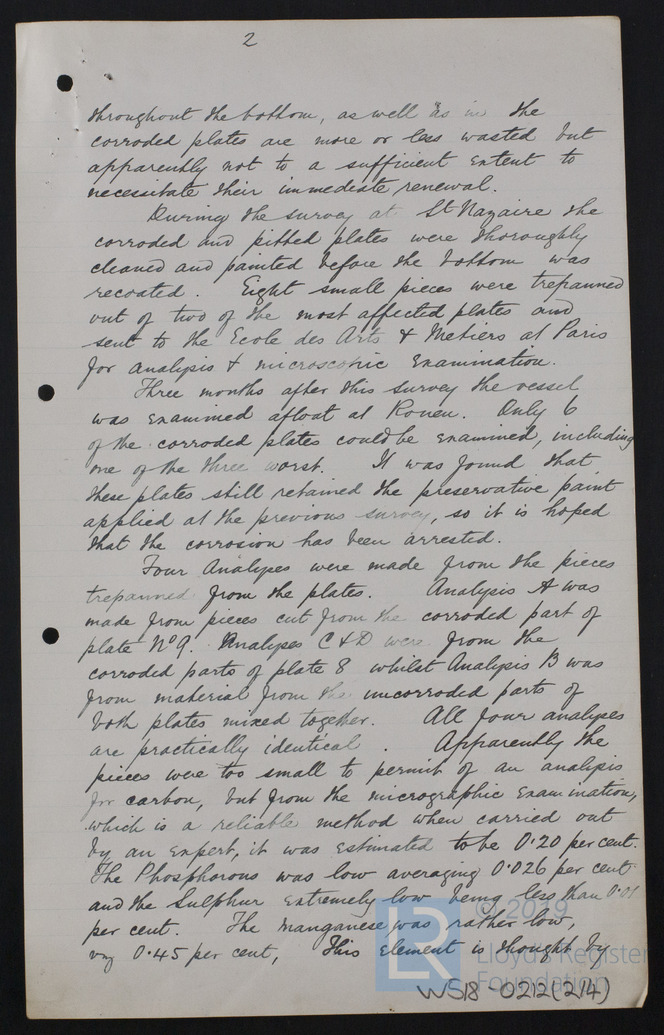 2
throughout the bottom, as well as in the
corroded plates are more or less wasted but
apparently not to a sufficient extent to
necessitate their immediate renewal.
During the survey at St Nazaire the
corroded and pitted plates were thoroughly
cleaned and painted before the bottom was
recoated. Eight small pieces were trepanned
out of two of the most affected plates and
sent to the Ecole des Arts & Metiers at Paris
for analysis & microscopic examination.
Three months after this survey the vessel
was examined afloat at Rouen. Only 6
of the corroded plates could be examined, including
one of the three worst. It was found that
these plates still retained the preservative paint
applied at the previous survey, so it is hoped
that the corrosion has been arrested.
Four Analyses were made from the pieces
trepanned from the plates. Analysis A was
made from pieces cut from the corroded part of
plate No 9. Analyses C & D were from the
corroded parts of plate 8 whilst Analysis B was
from material from the uncorroded parts of
both plates mixed together. All four analyses
are practically identical. Apparently the
pieces were too small to permit of an analysis
for carbon, but from the micrographic examination,
which is a reliable method when carried out
by an expert, it was estimated to be 0.20 per cent.
The Phosphorous was low averaging 0.026 per cent
and the Sulphur extremely low being less than 0.01
per cent. The manganese was rather low,
viz 0.45 per cent, This element is thought by
© 2019
LR
Lloyd's Register
Foundation
WS18-0212(2/4)